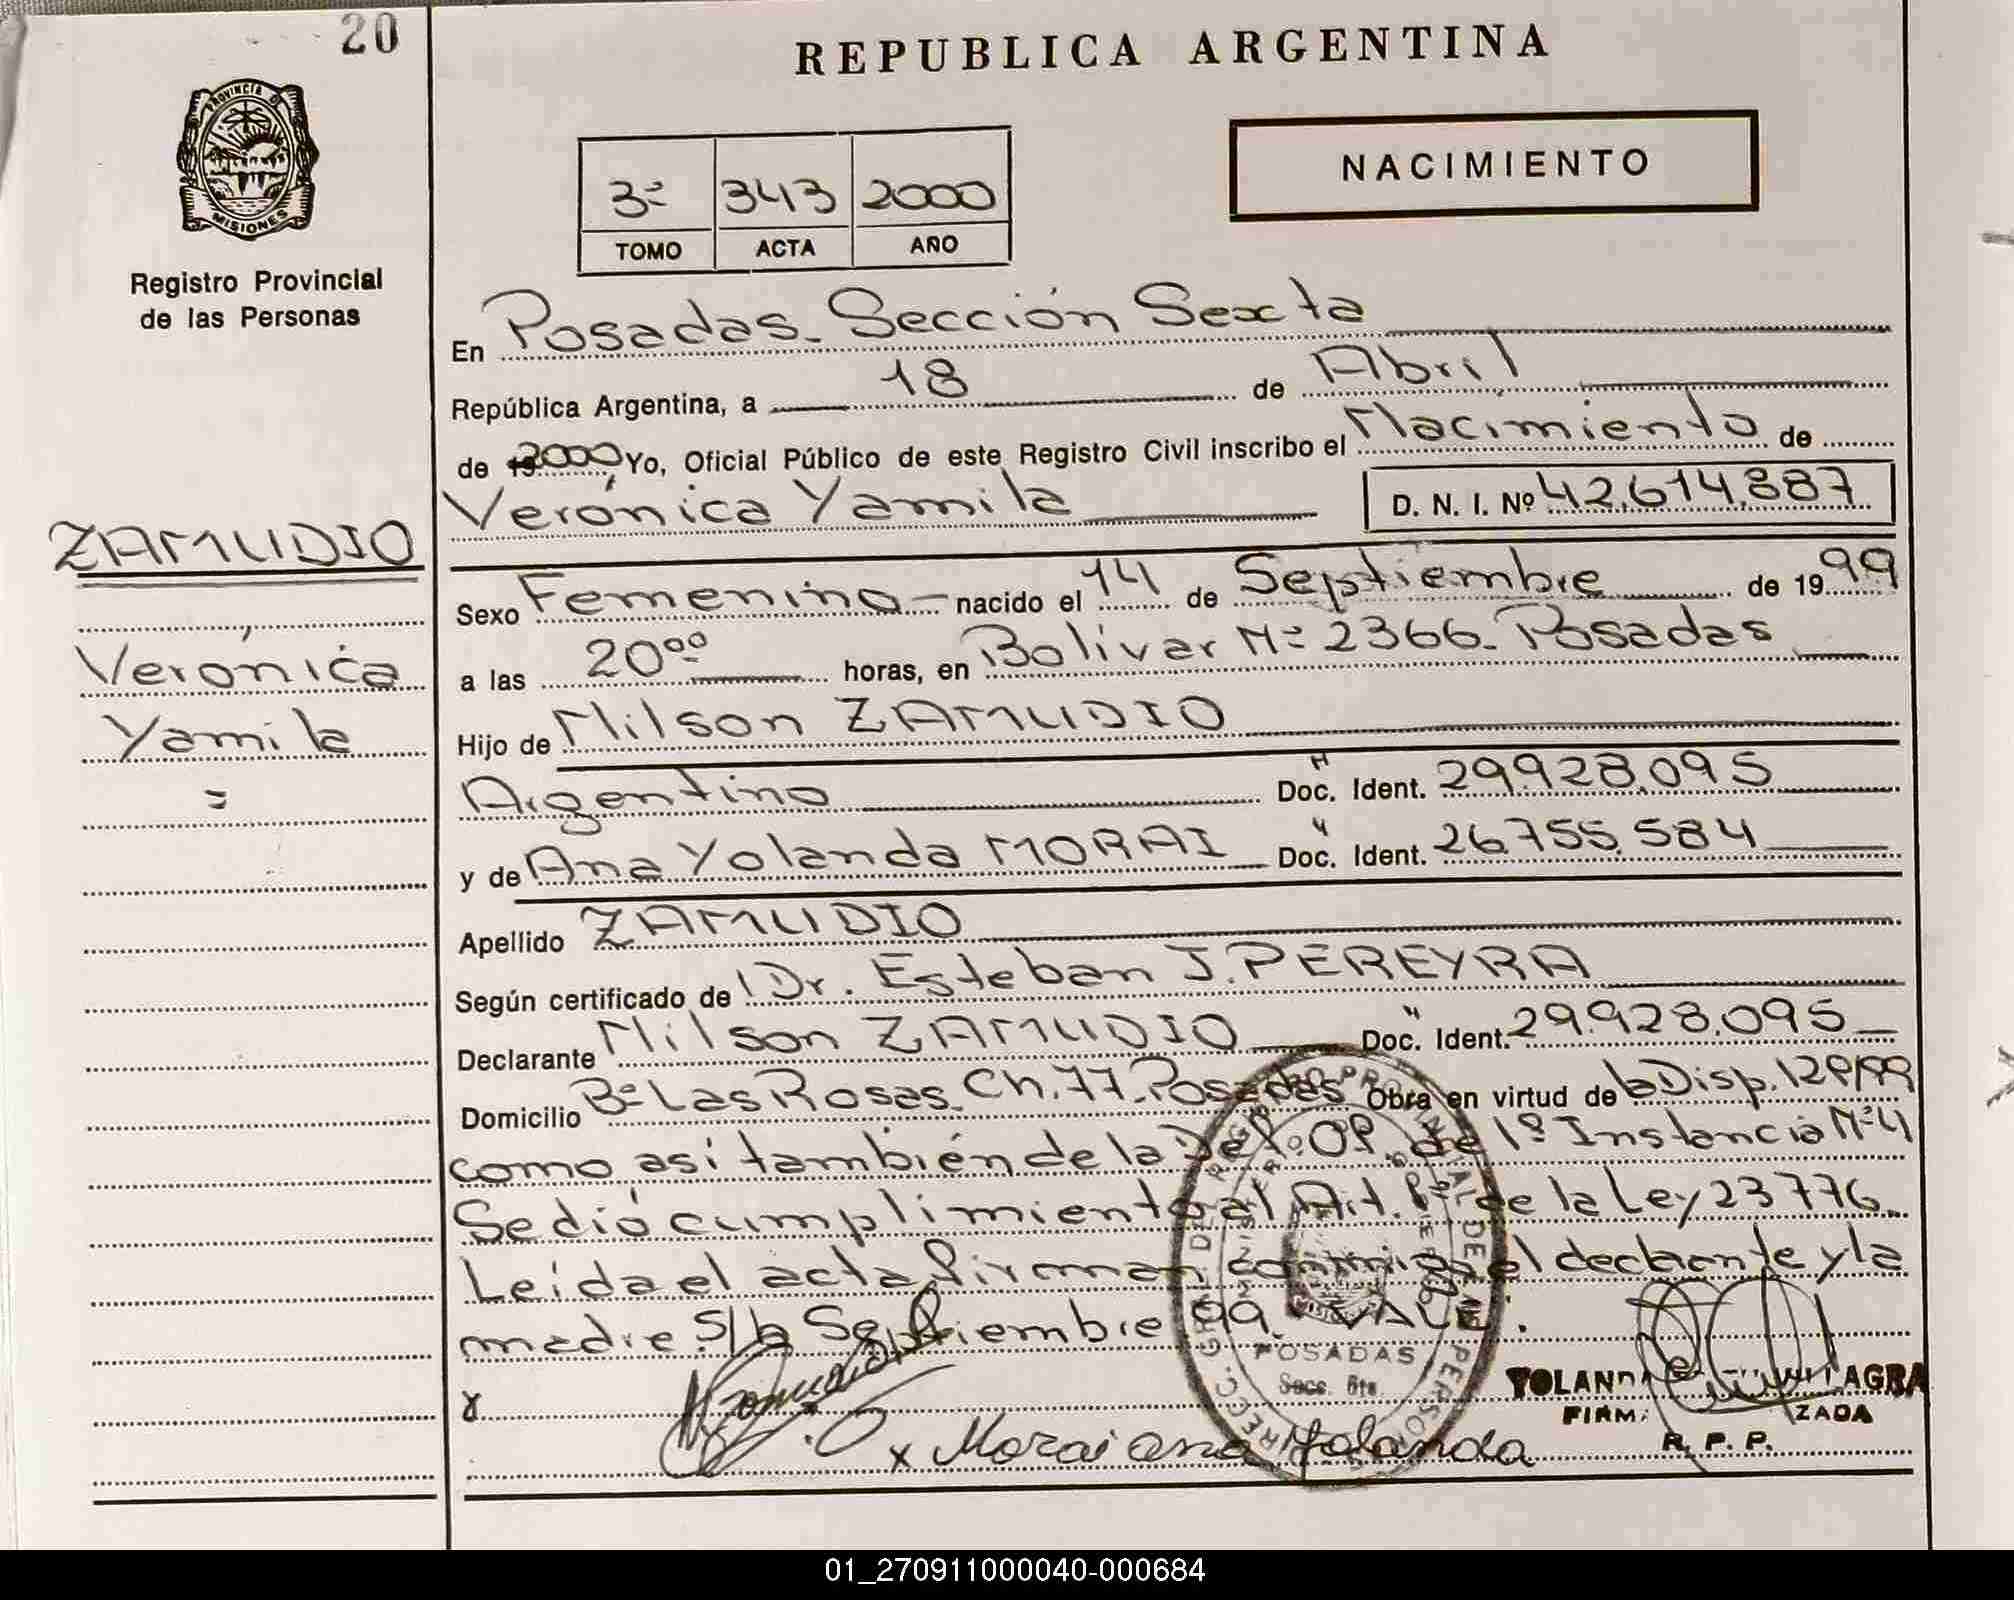 20
REPUBLICA ARGENTINA
PROVINCIA DE
MISIONES
Registro Provincial
de las Personas
3º 343 2000
TOMO ACTA AÑO
NACIMIENTO
En Posadas. Sección Sexta
República Argentina, a 18 de Abril
de 2000, Yo, Oficial Público de este Registro Civil inscribo el Nacimiento de
Verónica Yamila D. N. I. Nº 42.614.887.
ZAMUDIO
Verónica
Yamila
=
Sexo Femenino - nacido el 14 de Septiembre de 1999
a las 20⁰⁰ horas, en Bolívar Nº 2366. Posadas
Hijo de Nilson ZAMUDIO
Argentino Doc. Ident. 29.928.095
y de Ana Yolanda MORAI Doc. Ident. 26.755.584
Apellido ZAMUDIO
Según certificado de Dr. Esteban J. PEREYRA
Declarante Nilson ZAMUDIO Doc. Ident. 29.928.095
Domicilio Bº Las Rosas. Ch. 77. Posadas Obra en virtud de la Disp. 129/99
como así también de la Def. Of. de 1º Instancia Nº 4
Se dió cumplimiento al Art. de la Ley 23776.
Leída el acta firman conmigo el declarante y la
madre. S/b Septiembre 99. VALE.
x Morai Ana Yolanda
POSADAS
Secc. 6ta
YOLANDA AGRA
R. P. P.
01_270911000040-000684